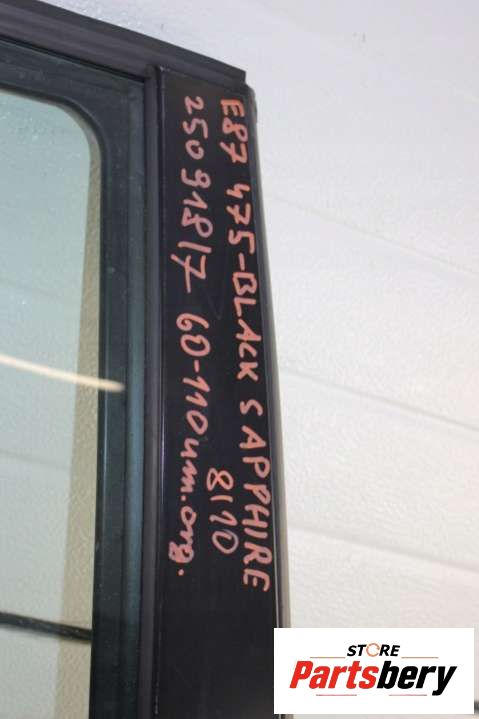 E87 475-BLACK SAPPHIRE
8/10
250918/7 60-110um.org.
STORE
Partsbery